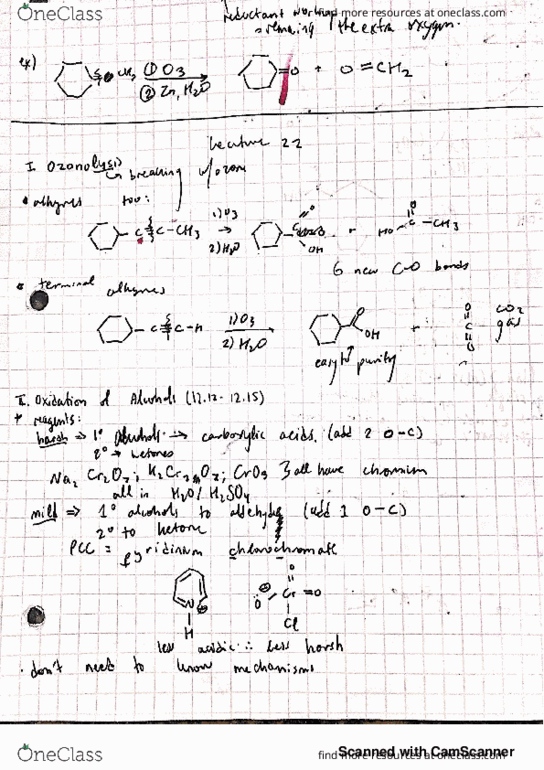 OneClass
find more resources at oneclass.com
reductant working
removing the extra oxygen.
ex)
CH2 ① O3
② Zn, H2O
=O + O=CH2
Lecture 22
I. Ozonolysis
↳ breaking w/ozone
• alkynes too:
C≡C-CH3 1) O3 →
2) H2O
OH + HO C CH3
O
6 new C-O bonds
• terminal alkynes
C≡C-H 1) O3 →
2) H2O
O
OH + O=C=O CO2 gas
easy to purify
II. Oxidation of Alcohols (12.12-12.15)
* reagents:
harsh ⇒ 1° Alcohols → carboxylic acids. (add 2 O-C)
2° → ketones
Na2 Cr2O7; K2Cr2O7; CrO3 3 all have chromium
all in H2O/H2SO4
mild ⇒ 1° alcohols to aldehyde (add 1 O-C)
2° to ketone
PCC = pyridinium chlorochromate
O
N ⊕ ⊖ O Cr =O
H Cl
less acidic ∴ less harsh
• don't need to know mechanisms
OneClass
find more resources at oneclass.com
Scanned with CamScanner